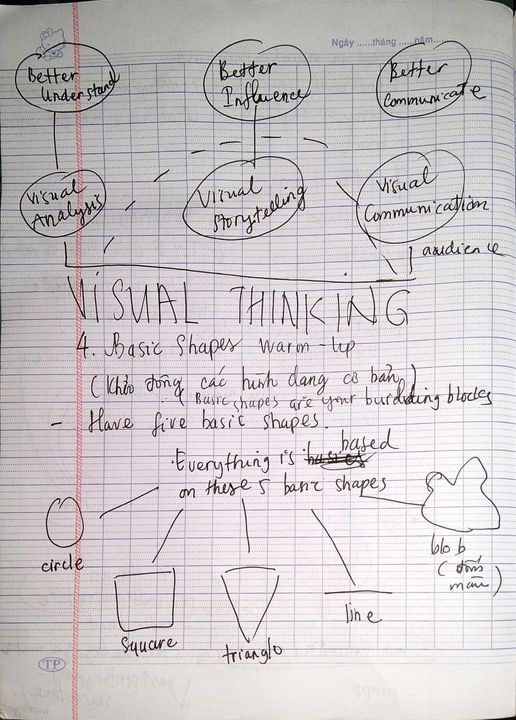 Ngày ......tháng ......năm......
Better
Understand
Better
Influence
Better
Communicate
Visual
Analysis
Visual
Storytelling
Visual
Communication
audience
VISUAL THINKING
4. Basic Shapes Warm-up
(Khởi động các hình dạng cơ bản)
Basic shapes are your building blocks
- Have five basic shapes.
Everything is based
on these 5 basic shapes
circle
square
trianglo
line
blob
(đốm
màu)
TP